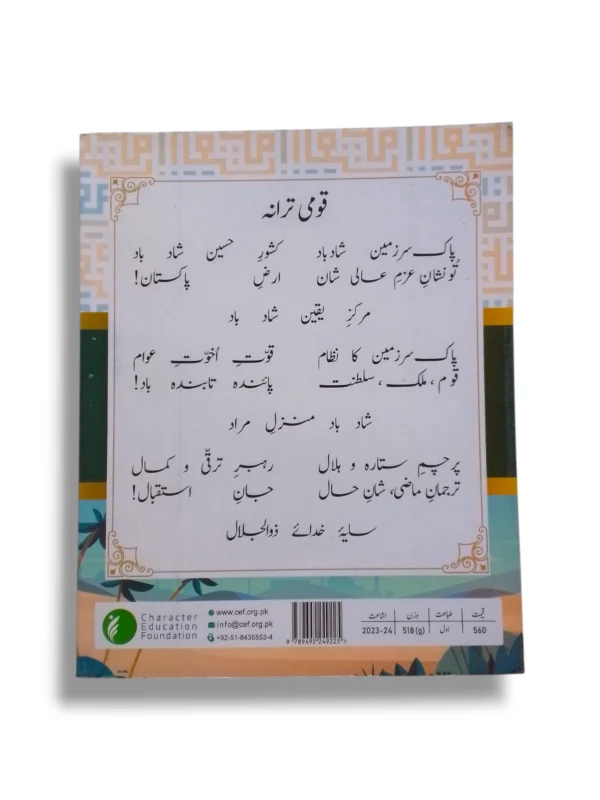 قومی ترانہ
پاک سرزمین شاد باد کشورِ حسین شاد باد
تُو نشانِ عزمِ عالی شان ارضِ پاکستان!
مرکزِ یقین شاد باد
پاک سرزمین کا نظام قوّتِ اُخوّتِ عوام
قوم، ملک، سلطنت پائندہ تابندہ باد!
شاد باد منزلِ مراد
پرچمِ ستارہ و ہلال رہبرِ ترقّی و کمال
ترجمانِ ماضی، شانِ حال جانِ استقبال!
سایۂ خدائے ذوالجلال
Character
Education
Foundation
www.cef.org.pk
info@cef.org.pk
+92-51-8435553-4
9 789692 249225
قیمت طباعت وزن اشاعت
560 اول 518 (g) 2023-24